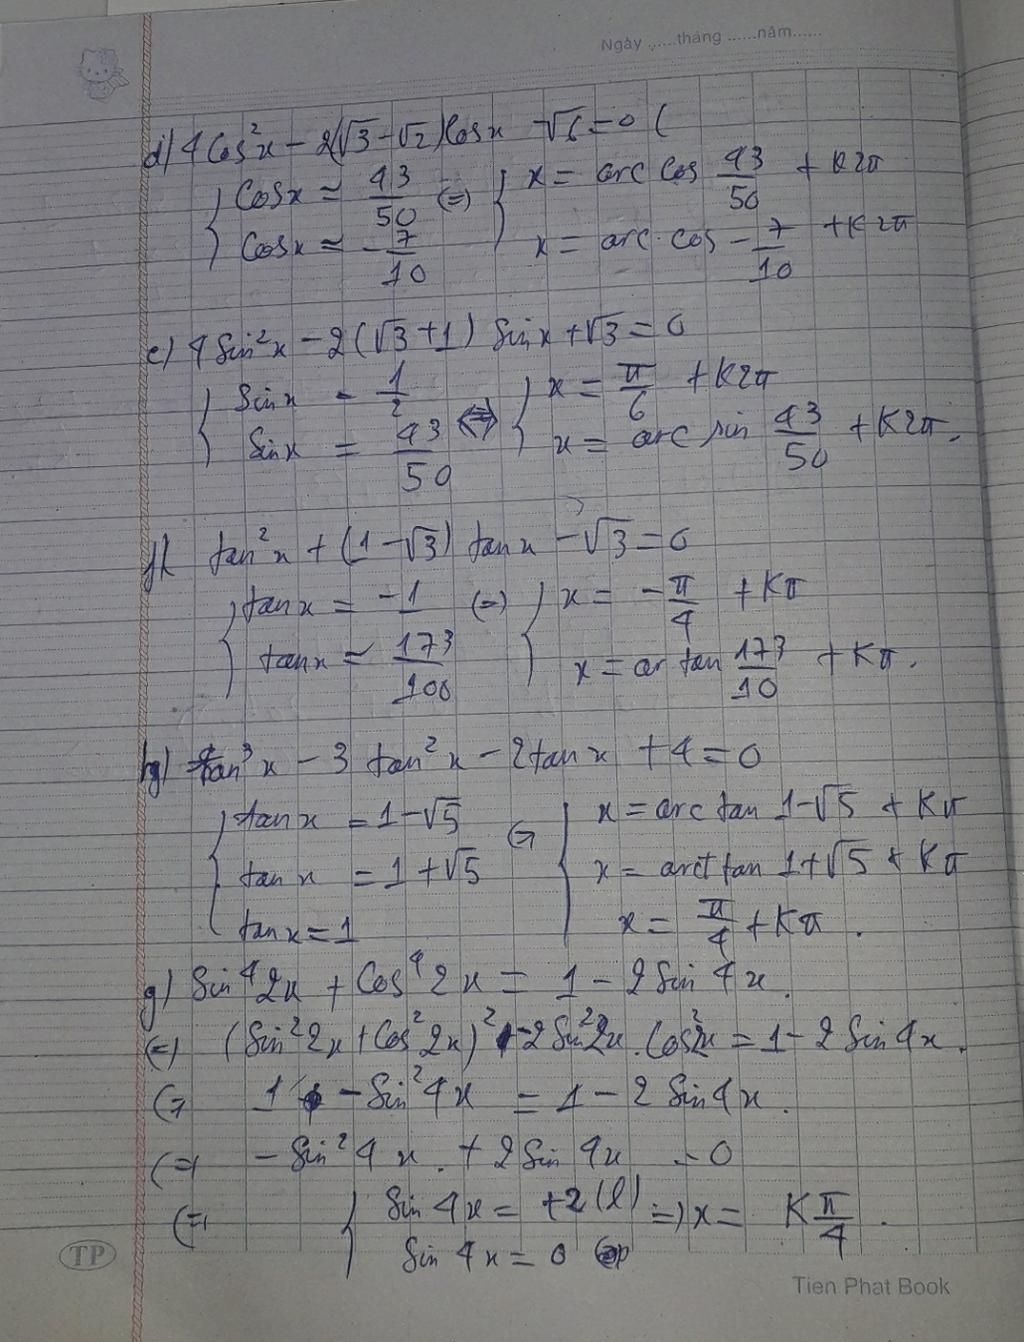 Ngày ......tháng ......năm......
d) 4 Cos²x - 2(√3 - √2) Cosx - √6 = 0 (
{ Cosx ≈ 43/50 (=) { x = arc cos 43/50 + K2π
{ Cosx ≈ - 7/10 { x = arc cos - 7/10 + K2π
e) 4 Sin²x - 2(√3 + 1) Sinx + √3 = 0
{ Sinx = 1/2 <=> { x = π/6 + K2π
{ Sinx = 43/50 { x = arc sin 43/50 + K2π.
f) tan²x + (1 - √3) tanx - √3 = 0
{ tanx = -1 (=) { x = - π/4 + Kπ
{ tanx = 173/100 { x = ar tan 173/10 + Kπ.
h) tan³x - 3 tan²x - 2tanx + 4 = 0
{ tanx = 1 - √5 (=) { x = arc tan 1 - √5 + Kπ
{ tanx = 1 + √5 { x = arct tan 1 + √5 + Kπ
{ tanx = 1 { x = π/4 + Kπ.
g) Sin⁴2x + Cos⁴2x = 1 - 2 Sin 4x.
(=) (Sin²2x + Cos²2x)² - 2 Sin²2x . Cos²2x = 1 - 2 Sin 4x.
(=) 1 - Sin²4x = 1 - 2 Sin 4x.
(=) - Sin²4x + 2 Sin 4x = 0
(=) { Sin 4x = +2 (l) => x = K π/4.
{ Sin 4x = 0
TP
Tien Phat Book